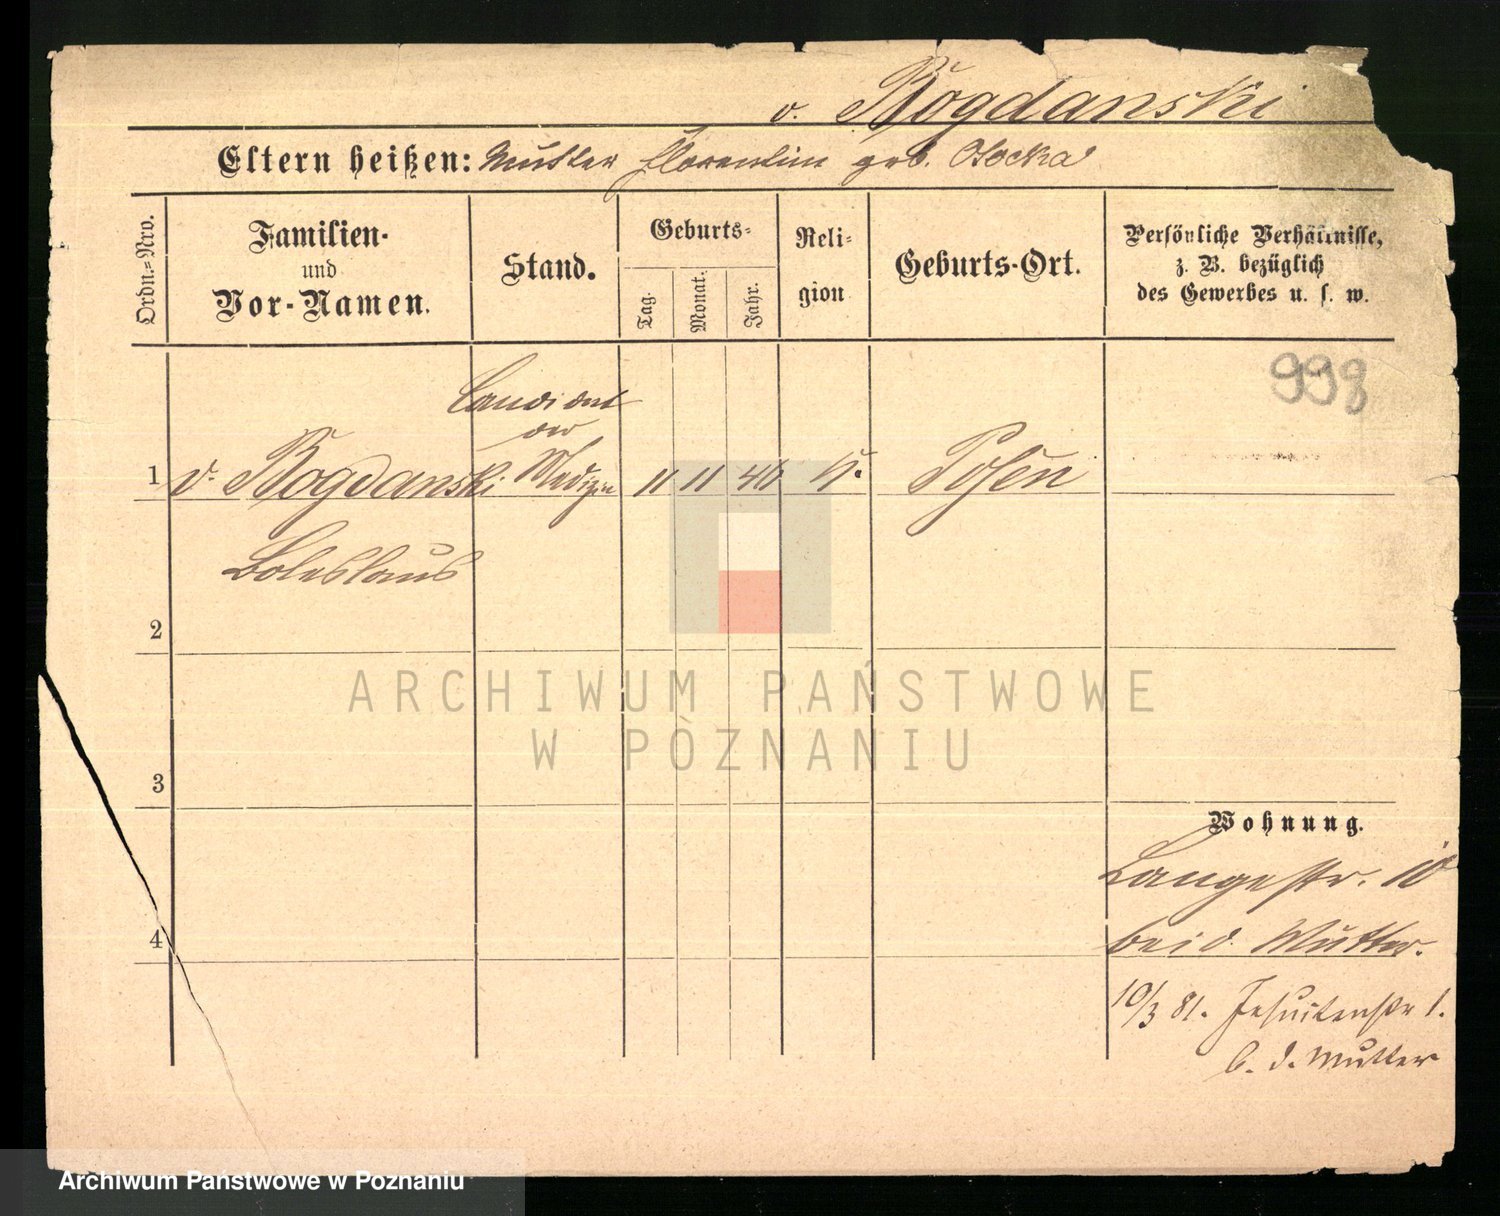 v. Bogdanski
Eltern heißen: Mutter Florentine geb. Osocka
Ordn.-Nro.
Familien-
und
Vor-Namen.
Stand.
Geburts-
Tag.
Monat.
Jahr.
Reli-
gion
Geburts-Ort.
Persönliche Verhältnisse,
z. B. bezüglich
des Gewerbes u. s. w.
998
Candidat
der
1 v. Bogdanski Medizin 11 11 46 k. Posen
Boleslaus
2
3
Wohnung.
Langestr. 10
4 bei d. Mutter.
10/3 81. Jesuitenstr 1.
b. d. Mutter
ARCHIWUM PAŃSTWOWE
W POZNANIU
Archiwum Państwowe w Poznaniu